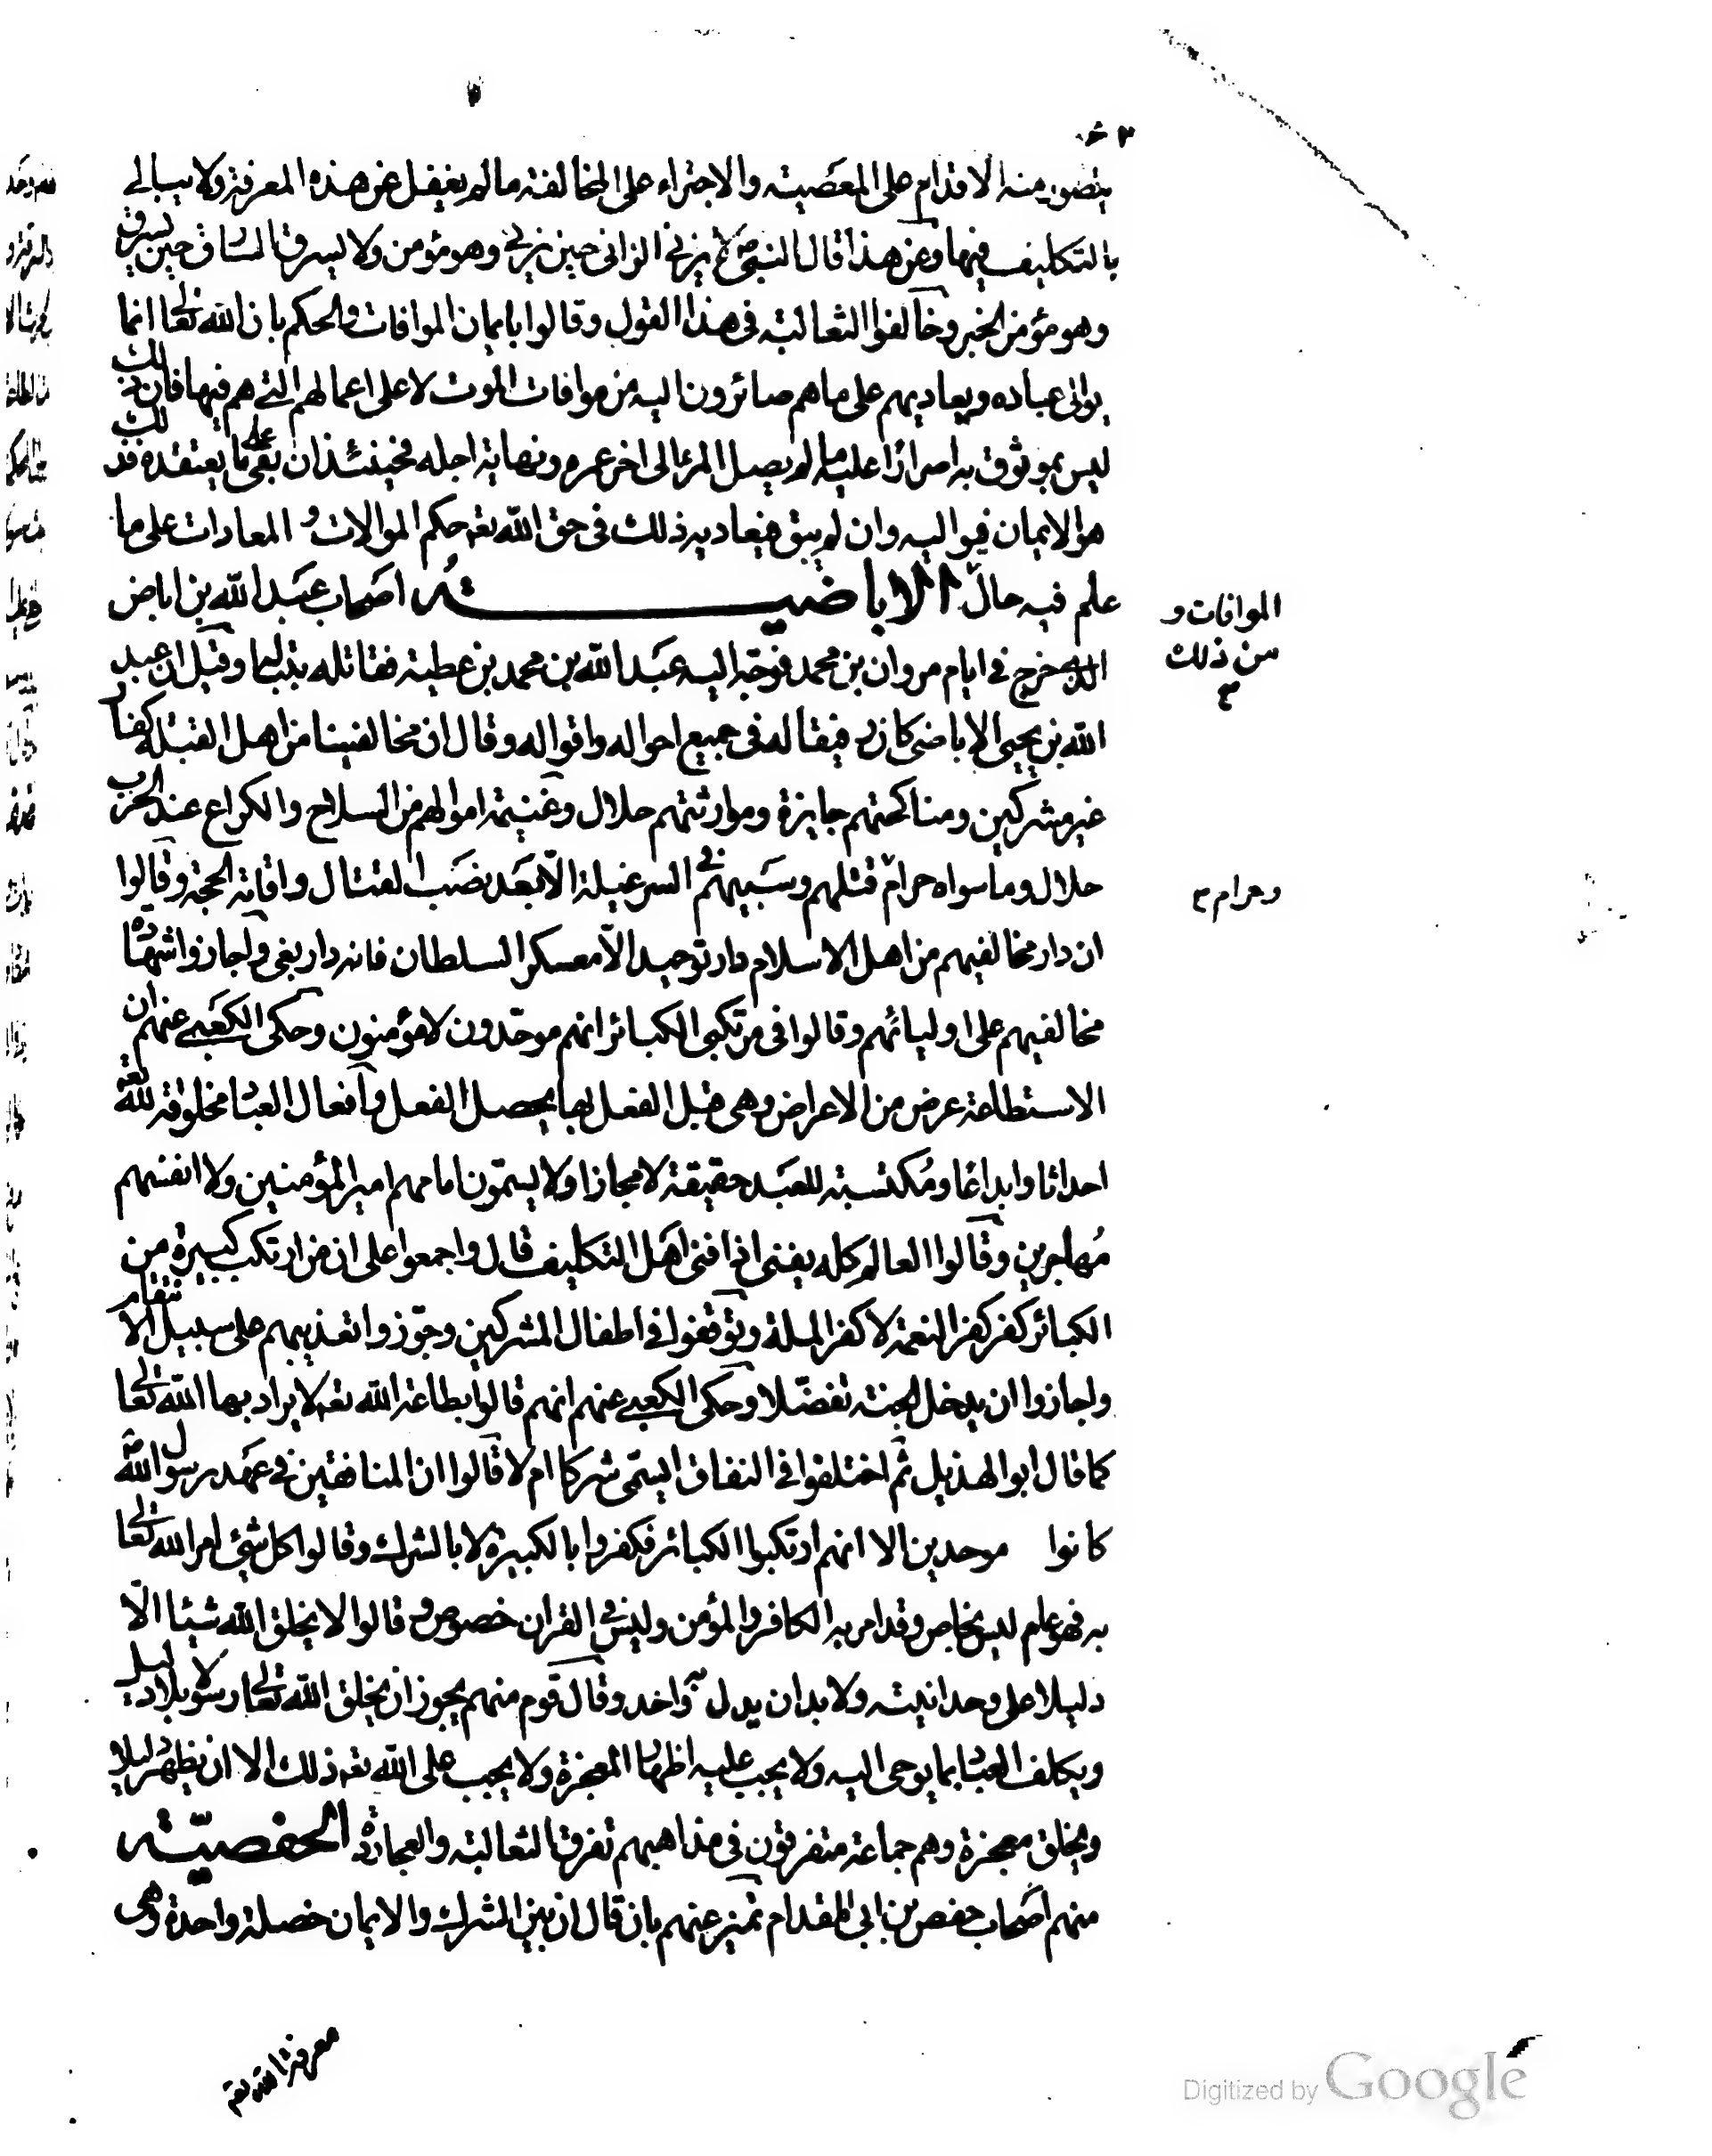 يتصور منه الاقدام على المعصية والاجتراء على المخالفة ما لم يغفل عن هذه المعرفة ولا يبالي
بالتكليف فيها وعن هذا قال النبي ص لا يزني الزاني حين يزني وهو مؤمن ولا يسرق السارق حين يسرق
وهو مؤمن الخبر وخالفوا الثعالبة في هذا القول وقالوا بايمان الموافات والحكم بان الله تعالى انما
يوالى عباده ويعاديهم على ما هم صائرون اليه من موافات الموت لا على اعمالهم التي هم فيها فان ذلك
ليس بموثوق به اصرارا عليه ما لم يصل المرء الى اخر عمره ونهاية اجله فحينئذ ان بقى على ما يعتقده فذلك
هو الايمان فيواليه وان لم يبق فيعاديه ذلك في حق الله تعه حكم الموالات و المعادات على ما
علم فيه حال الاباضية اصحاب عبد الله بن اباض
الموافات و
من ذلك
الذي خرج في ايام مروان بن محمد فوجه اليه عبد الله بن محمد بن عطية فقاتله بتبالة وقيل ان عبد
الله بن يحيى الاباضي كان رفيقا له في جميع احواله واقواله وقال ان مخالفينا من اهل القبلة كفار
غير مشركين ومناكحتهم جايزة وموارثتهم حلال وغنيمة اموالهم من السلاح والكراع عند الحرب
حلال وما سواه حرام قتلهم وسبيهم في السر غيلة الا بعد نصب القتال واقامة الحجة وقالوا
وحرام
ان دار مخالفيهم من اهل الاسلام دار توحيد الا معسكر السلطان فانه دار بغى واجازوا شهادة
مخالفيهم على اوليائهم وقالوا في مرتكبي الكبائر انهم موحدون لا مؤمنون وحكى الكعبي عنهم ان
الاستطاعة عرض من الاعراض وهي قبل الفعل بها يحصل الفعل وافعال العباد مخلوقة لله تعه
احداثا وابداعا ومكتسبة للعبد حقيقة لا مجازا ولا يسمون امامهم امير المؤمنين ولا انفسهم
مهاجرين وقالوا العالم كله يفنى اذا فنى اهل التكليف قال واجمعوا على ان من ارتكب كبيرة من
الكبائر كفر كفر النعمة لا كفر الملة وتوقفوا في اطفال المشركين وجوزوا تعذيبهم على سبيل الانتقام
واجازوا ان يدخل الجنة تفضلا وحكى الكعبي عنهم انهم قالوا بطاعة الله تعه لا يراد بها الله تعالى
كما قال ابو الهذيل ثم اختلفوا في النفاق ايسمى شركا ام لا قالوا ان المنافقين في عهد رسول الله ص
كانوا موحدين الا انهم ارتكبوا الكبائر فكفروا بالكبيرة لا بالشرك وقالوا كل شئ امر الله تعالى
به فهو عام ليس بخاص وقد امر به الكافر والمؤمن وليس في القران خصوص و قالوا لا يخلق الله شيئا الا
دليلا على وحدانيته ولا بد ان يدل به واحد وقال قوم منهم يجوز ان يخلق الله تعالى رسولا بلا دليل
ويكلف العباد بما يوحى اليه ولا يجب عليه اظهار المعجزة ولا يجب على الله تعه ذلك الا ان يظهر دليلا
ويخلق معجزة وهم جماعة متفرقون في مذاهبهم تفرق الثعالبة والعجاردة الحفصية
منهم اصحاب حفص بن ابي المقدام تميز عنهم بان قال ان بين الشرك والايمان خصلة واحدة وهي
معرفة الله تعه
Digitized by Google